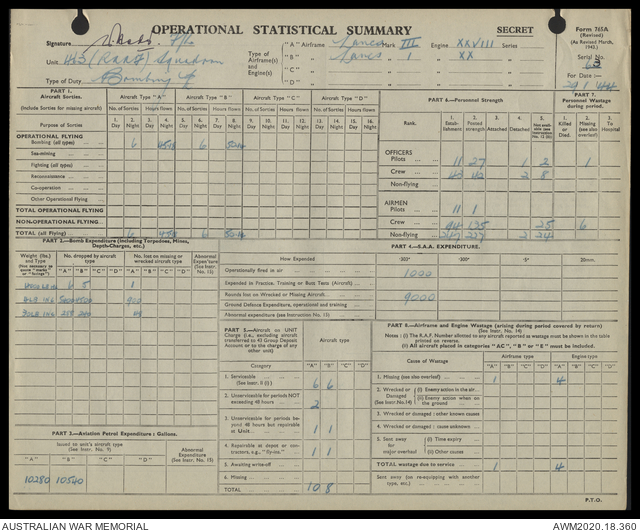 OPERATIONAL STATISTICAL SUMMARY
SECRET
Form 765A
(Revised)
(As Revised March, 1943.)
Serial No.
63
For Date :—
29/1/44
Signature
F/Lt
Unit 463 (RAAF) Squadron
Type of Duty Bombing
Type of Airframe(s) and Engine(s):
"A" Airframe Lancs Mark III Engine XXVIII Series
"B" Lancs I XX
"C"
"D"
PART 1.
Aircraft Sorties.
(Include Sorties for missing aircraft)
Purpose of Sorties
Aircraft Type "A" Aircraft Type "B" Aircraft Type "C" Aircraft Type "D"
No. of Sorties Hours flown No. of Sorties Hours flown No. of Sorties Hours flown No. of Sorties Hours flown
1. Day 2. Night 3. Day 4. Night 5. Day 6. Night 7. Day 8. Night 9. Day 10. Night 11. Day 12. Night 13. Day 14. Night 15. Day 16. Night
OPERATIONAL FLYING
Bombing (all types) 6 6
Sea-mining
Fighting (all types)
Reconnaissance
Co-operation
Other Operational Flying
TOTAL OPERATIONAL FLYING
NON-OPERATIONAL FLYING
TOTAL (all Flying) 6 6
PART 6.—Personnel Strength
Rank.
1. Establishment 2. Posted strength 3. Attached 4. Detached
PART 7.
Personnel Wastage during period.
1. Killed or Died. 2. Missing (see also overleaf) 3. To Hospital
OFFICERS
Pilots 11 27 1 2 1
Crew 40 42 2 8
Non-flying
AIRMEN
Pilots 11 1
Crew 94 135 25 6
Non-flying
PART 2.—Bomb Expenditure (including Torpedoes, Mines, Depth-Charges, etc.)
Weight (lbs.) and Type
No. dropped by aircraft type
No. lost on missing or wrecked aircraft type
Abnormal Expenditure (See Instr. No. 15)
"A" "B" "C" "D" "A" "B" "C" "D"
6 5 1
4LB INC 900
30LB INC
PART 3.—Aviation Petrol Expenditure : Gallons.
Issued to unit's aircraft type
(See Instr. No. 9)
Abnormal Expenditure
(See Instr. No. 15)
"A" "B" "C" "D"
10280 10540
PART 4.—S.A.A. EXPENDITURE.
How Expended
·303" ·300" ·5" 20mm.
Operationally fired in air 1000
Expended in Practice, Training or Butt Tests (Aircraft)
Rounds lost on Wrecked or Missing Aircraft 9000
Ground Defence Expenditure, operational and training
Abnormal expenditure (see Instruction No. 15)
PART 5.—Aircraft on UNIT Charge (i.e., excluding aircraft transferred to 43 Group Deposit Account or to the charge of any other unit)
Aircraft type
Category
"A" "B" "C" "D"
1. Serviceable (See Instr. II (i)) 6 6
2. Unserviceable for periods NOT exceeding 48 hours 2
3. Unserviceable for periods beyond 48 hours but repairable at Unit 1 1
4. Repairable at depot or contractors, e.g., "fly-ins." 1 1
5. Awaiting write-off
6. Missing
TOTAL 10 8
PART 8.—Airframe and Engine Wastage (arising during period covered by return)
(See Instr. No. 14)
Notes : (i) The R.A.F. Number allotted to any aircraft reported as wastage must be shown in the table printed on reverse.
(ii) All aircraft placed in categories "AC", "B" or "E" must be included.
Cause of Wastage
Airframe type Engine type
"A" "B" "C" "D" "A" "B" "C" "D"
1. Missing (see also overleaf) 1 4
2. Wrecked or Damaged (See Instr. No. 14)
(i) Enemy action in the air
(ii) Enemy action when on the ground
3. Wrecked or damaged : other known causes
4. Wrecked or damaged : cause unknown
5. Sent away for major overhaul
(i) Time expiry
(ii) Other causes
TOTAL wastage due to service 1 4
Sent away (on re-equipping with another type, etc.)
P.T.O.
AUSTRALIAN WAR MEMORIAL
AWM2020.18.360